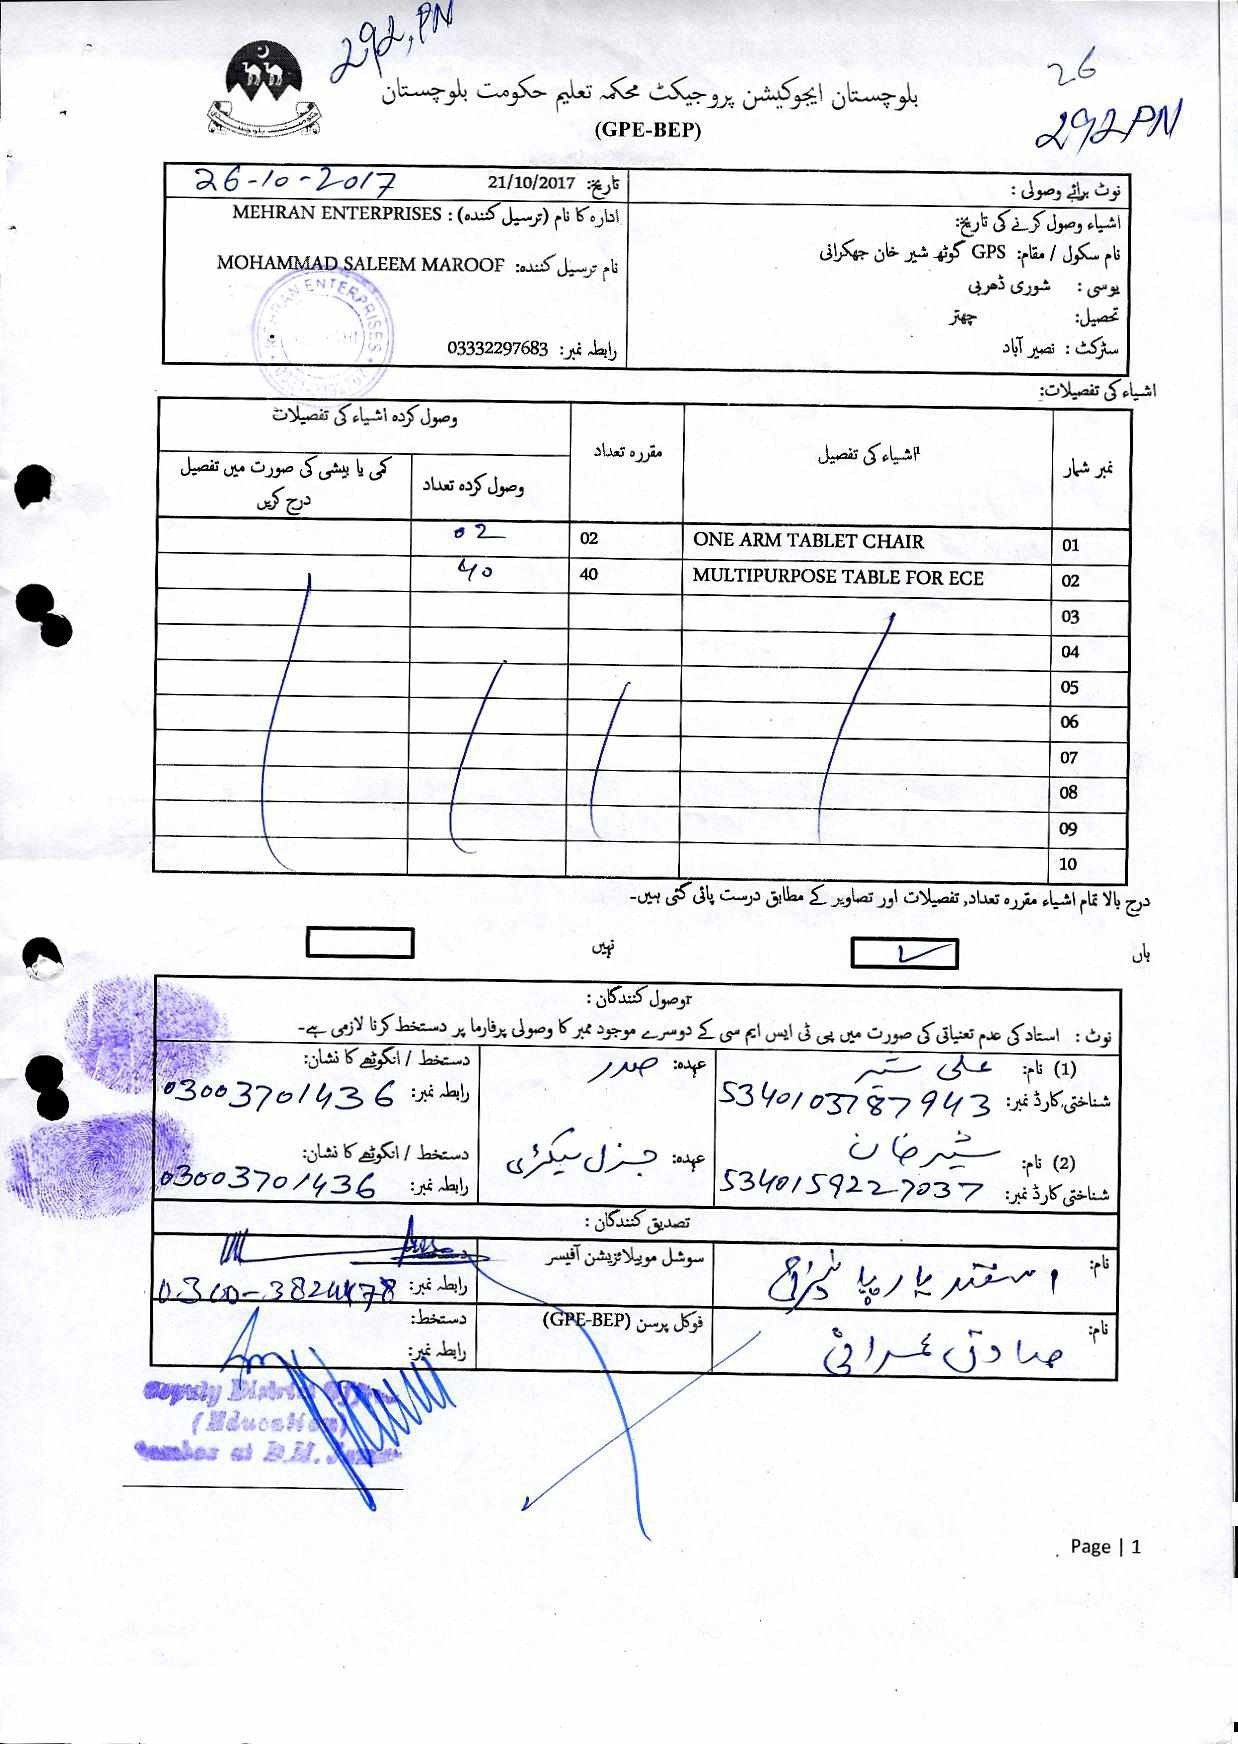 292, PN
26
292 PN
بلوچستان ایجوکیشن پروجیکٹ محکمہ تعلیم حکومت بلوچستان
(GPE-BEP)
نوٹ برائے وصولی :
تاریخ: 21/10/2017 26-10-2017
اشیاء وصول کرنے کی تاریخ:
ادارہ کا نام (ترسیل کنندہ) : MEHRAN ENTERPRISES
نام سکول / مقام: GPS گوٹھ شیر خان جھکرانی
نام ترسیل کنندہ: MOHAMMAD SALEEM MAROOF
یوسی : شوری ڈھربی
تحصیل: چھتر
سٹرکٹ : نصیر آباد
رابطہ نمبر: 03332297683
MEHRAN ENTERPRISES
اشیاء کی تفصیلات:
نمبر شمار اشیاء کی تفصیل مقررہ تعداد وصول کردہ اشیاء کی تفصیلات
وصول کردہ تعداد کمی یا بیشی کی صورت میں تفصیل درج کریں
01 ONE ARM TABLET CHAIR 02 02
02 MULTIPURPOSE TABLE FOR ECE 40 40
03
04
05
06
07
08
09
10
درج بالا تمام اشیاء مقررہ تعداد, تفصیلات اور تصاویر کے مطابق درست پائی گئی ہیں۔
ہاں نہیں
وصول کنندگان :
نوٹ : استاد کی عدم تعیناتی کی صورت میں پی ٹی ایس ایم سی کے دوسرے موجود ممبر کا وصولی پرفارما پر دستخط کرنا لازمی ہے۔
(1) نام: علی شیر عہدہ: صدر دستخط / انگوٹھے کا نشان:
شناختی کارڈ نمبر: 5340103787943 رابطہ نمبر: 03003701436
(2) نام: شیر خان عہدہ: جنرل سیکٹری دستخط / انگوٹھے کا نشان:
شناختی کارڈ نمبر: 5340159227037 رابطہ نمبر: 03003701436
تصدیق کنندگان :
نام: سوشل موبیلائزیشن آفیسر
رابطہ نمبر:
نام: صادق عمرانی فوکل پرسن (GPE-BEP) دستخط:
رابطہ نمبر:
Deputy District
(Education)
Page | 1